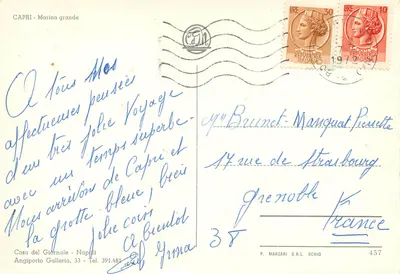 CAPRI - Marina grande
30
10
19
A tous Mes
affectueuses pensées
d'un très jolie voyage
avec un temps superbe.
Nous arrivons de Capri et
la grotte bleue, bien
jolie coin
A bientot
Irma
Me Brunet - Manquat Pierrette
17 rue de Strasbourg
Grenoble
38 France
Casa del Giornale - Napoli
Angiporto Galleria, 33 - Tel. 391.481
P. MARZARI S.R.L. SCHIO
457